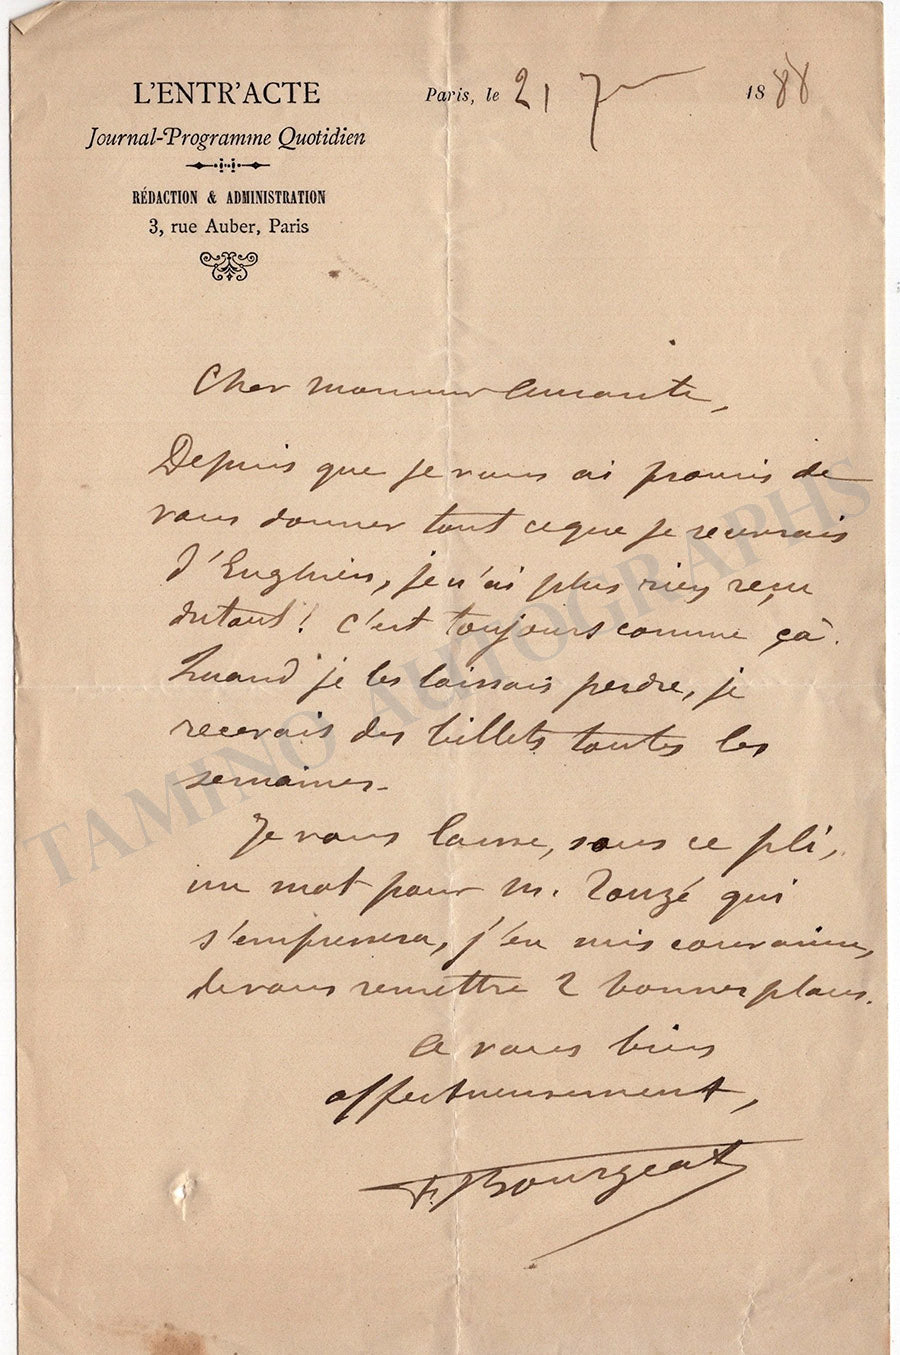 L'ENTR'ACTE
Journal-Programme Quotidien
RÉDACTION & ADMINISTRATION
3, rue Auber, Paris
Paris, le 21 1888
Cher Monsieur
Depuis que je vous ai promis de
vous donner tout ce que je recevrais
d'Enghien, je n'ai plus rien reçu
du tout! C'est toujours comme çà.
Quand je les laissais perdre, je
recevais des billets toutes les
semaines.
Je vous laisse, sous ce pli,
un mot pour M. Rouzé qui
s'empressera, j'en suis convaincu,
de vous remettre 2 bonnes places.
A vous bien
affectueusement,
F. Bourgeat
TAMINO AUTOGRAPHS